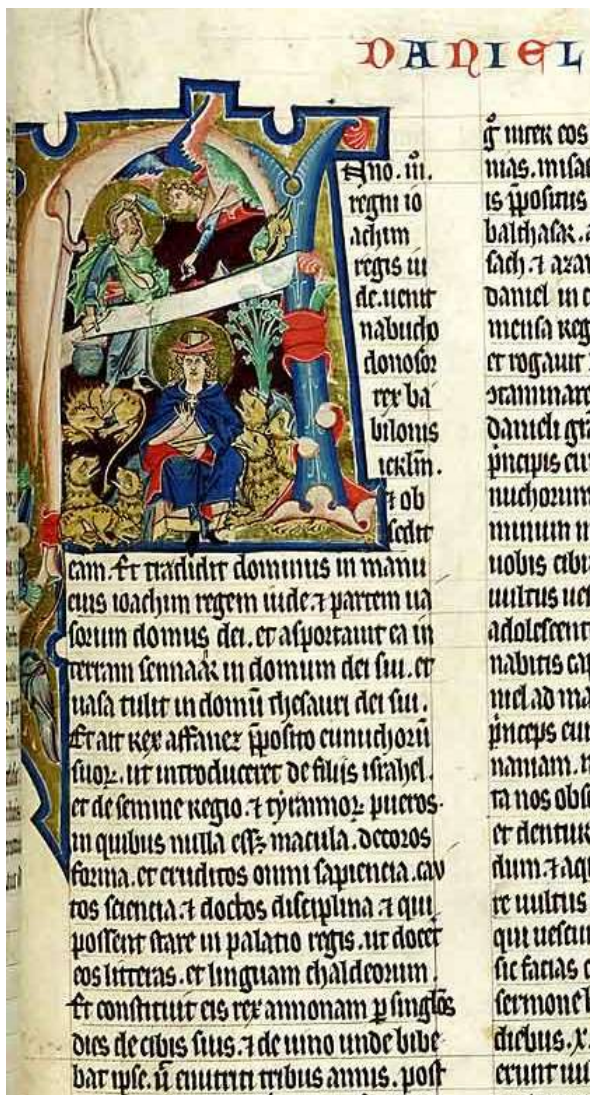 DANIEL
Ano. iii.
regni io
achim
regis iu
de. uenit
nabucho
donosor
rex ba
bilonis
ierl̄m.
⁊ ob
sedit
eam. Et tradidit dominus in manu
eius ioachim regem iude. ⁊ partem ua
sorum domus dei. et asportauit ea in
terram sennaar in domum dei sui. et
uasa tulit in domū thesauri dei sui.
Et ait rex affanez p̄posito eunuchorū
suoꝝ. ut introduceret de filiis israhel.
et de semine regio. ⁊ tyrannoꝝ pueros.
in quibus nulla eēt macula. decoros
forma. et eruditos omni sapiencia. cau
tos sciencia. ⁊ doctos disciplina. ⁊ qui
possent stare in palatio regis. ut docēt
eos litteras. et linguam chaldeorum.
Et constituit eis rex annonam p̱ singl̄os
dies de cibis suis. ⁊ de uino unde bibe
bat ipse. ū enutriti tribus annis. post
g̊ inter eos
nias. misa
is p̄positus
balthasar. a
sach. ⁊ azar
daniel in c
mensa reg
et rogauit
taminare
danieli gr̄a
principis eu
nuchorum
minum m
uobis cibu
uultus ues
adolescent
nabitis cap
niel ad ma
princeps eun
naniam. m
ta nos obse
et dentur
dum. ⁊ aqu
re uultus
qui uescun
sic facias c
sermone h
diebus. x.
erunt uul